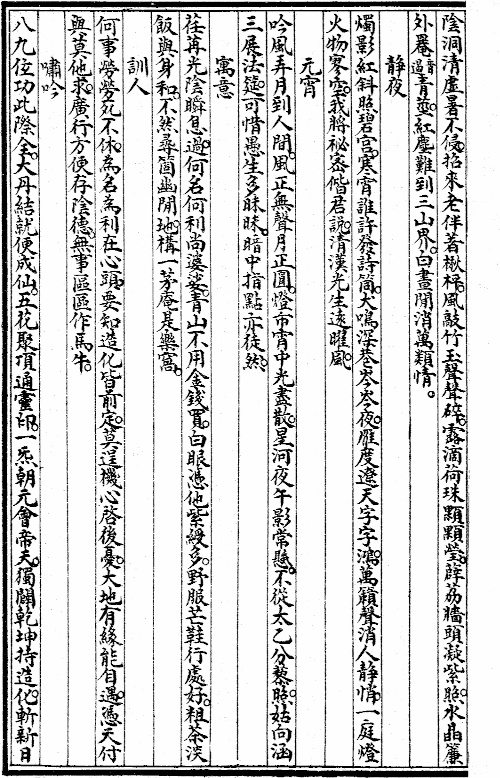 陰洞清虛暑不侵。招來老伴著楸枰。風敲竹玉聲聲碎。露滴荷珠顆顆瑩。薜荔牆頭凝紫照。水晶簾
外罨青藍。紅塵難到三山界。白晝閒消萬類情。
靜夜
燭影紅斜照碧宮。寒宵誰許發詩筒。犬鳴深巷岑岑夜。雁度遼天字字鴻。萬籟聲消人靜悄。一庭燈
火物寒空。我將祕密偕君說。清漢先生遠睢風
元宵
吟風弄月到人間。風正無聲月正圓。燈市宵中光盡散。星河夜午影常懸。不從太乙分藜照。姑向涵
三展法筵。可惜愚生多昧昧。暗中指點亦徒然。
寓意
荏苒光陰瞬息過。何名何利尚婆娑。青山不用金錢買。白眼憑他紫綬多。野服芒鞋行處好。粗茶淡
飯與身和。不然尋箇幽閒地。構一茅庵是樂窩。
訓人
何事勞勞死不休。為名為利在心頭。要知造化皆前定。莫逞機心啓後憂。大地有緣能自遇。憑天付
與莫他求。廣行方便存陰德。無事區區作馬牛。
嘯吟
八九位功此際全。大丹結就便成仙。五花聚頂通靈印。一炁朝元會帝天。獨闢乾坤持造化。斬新日